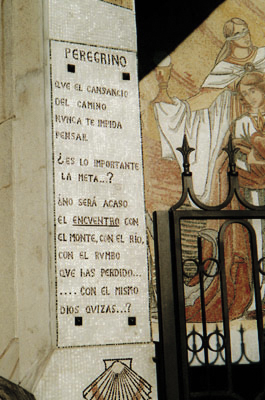 PEREGRINO
QUE EL CANSANCIO
DEL CAMINO
NUNCA TE IMPIDA
PENSAR.
¿ES LO IMPORTANTE
LA META...?
¿NO SERÁ ACASO
EL ENCUENTRO CON
EL MONTE, CON EL RÍO,
CON EL RUMBO
QUE HAS PERDIDO...
.... CON EL MISMO
DIOS QUIZAS...?